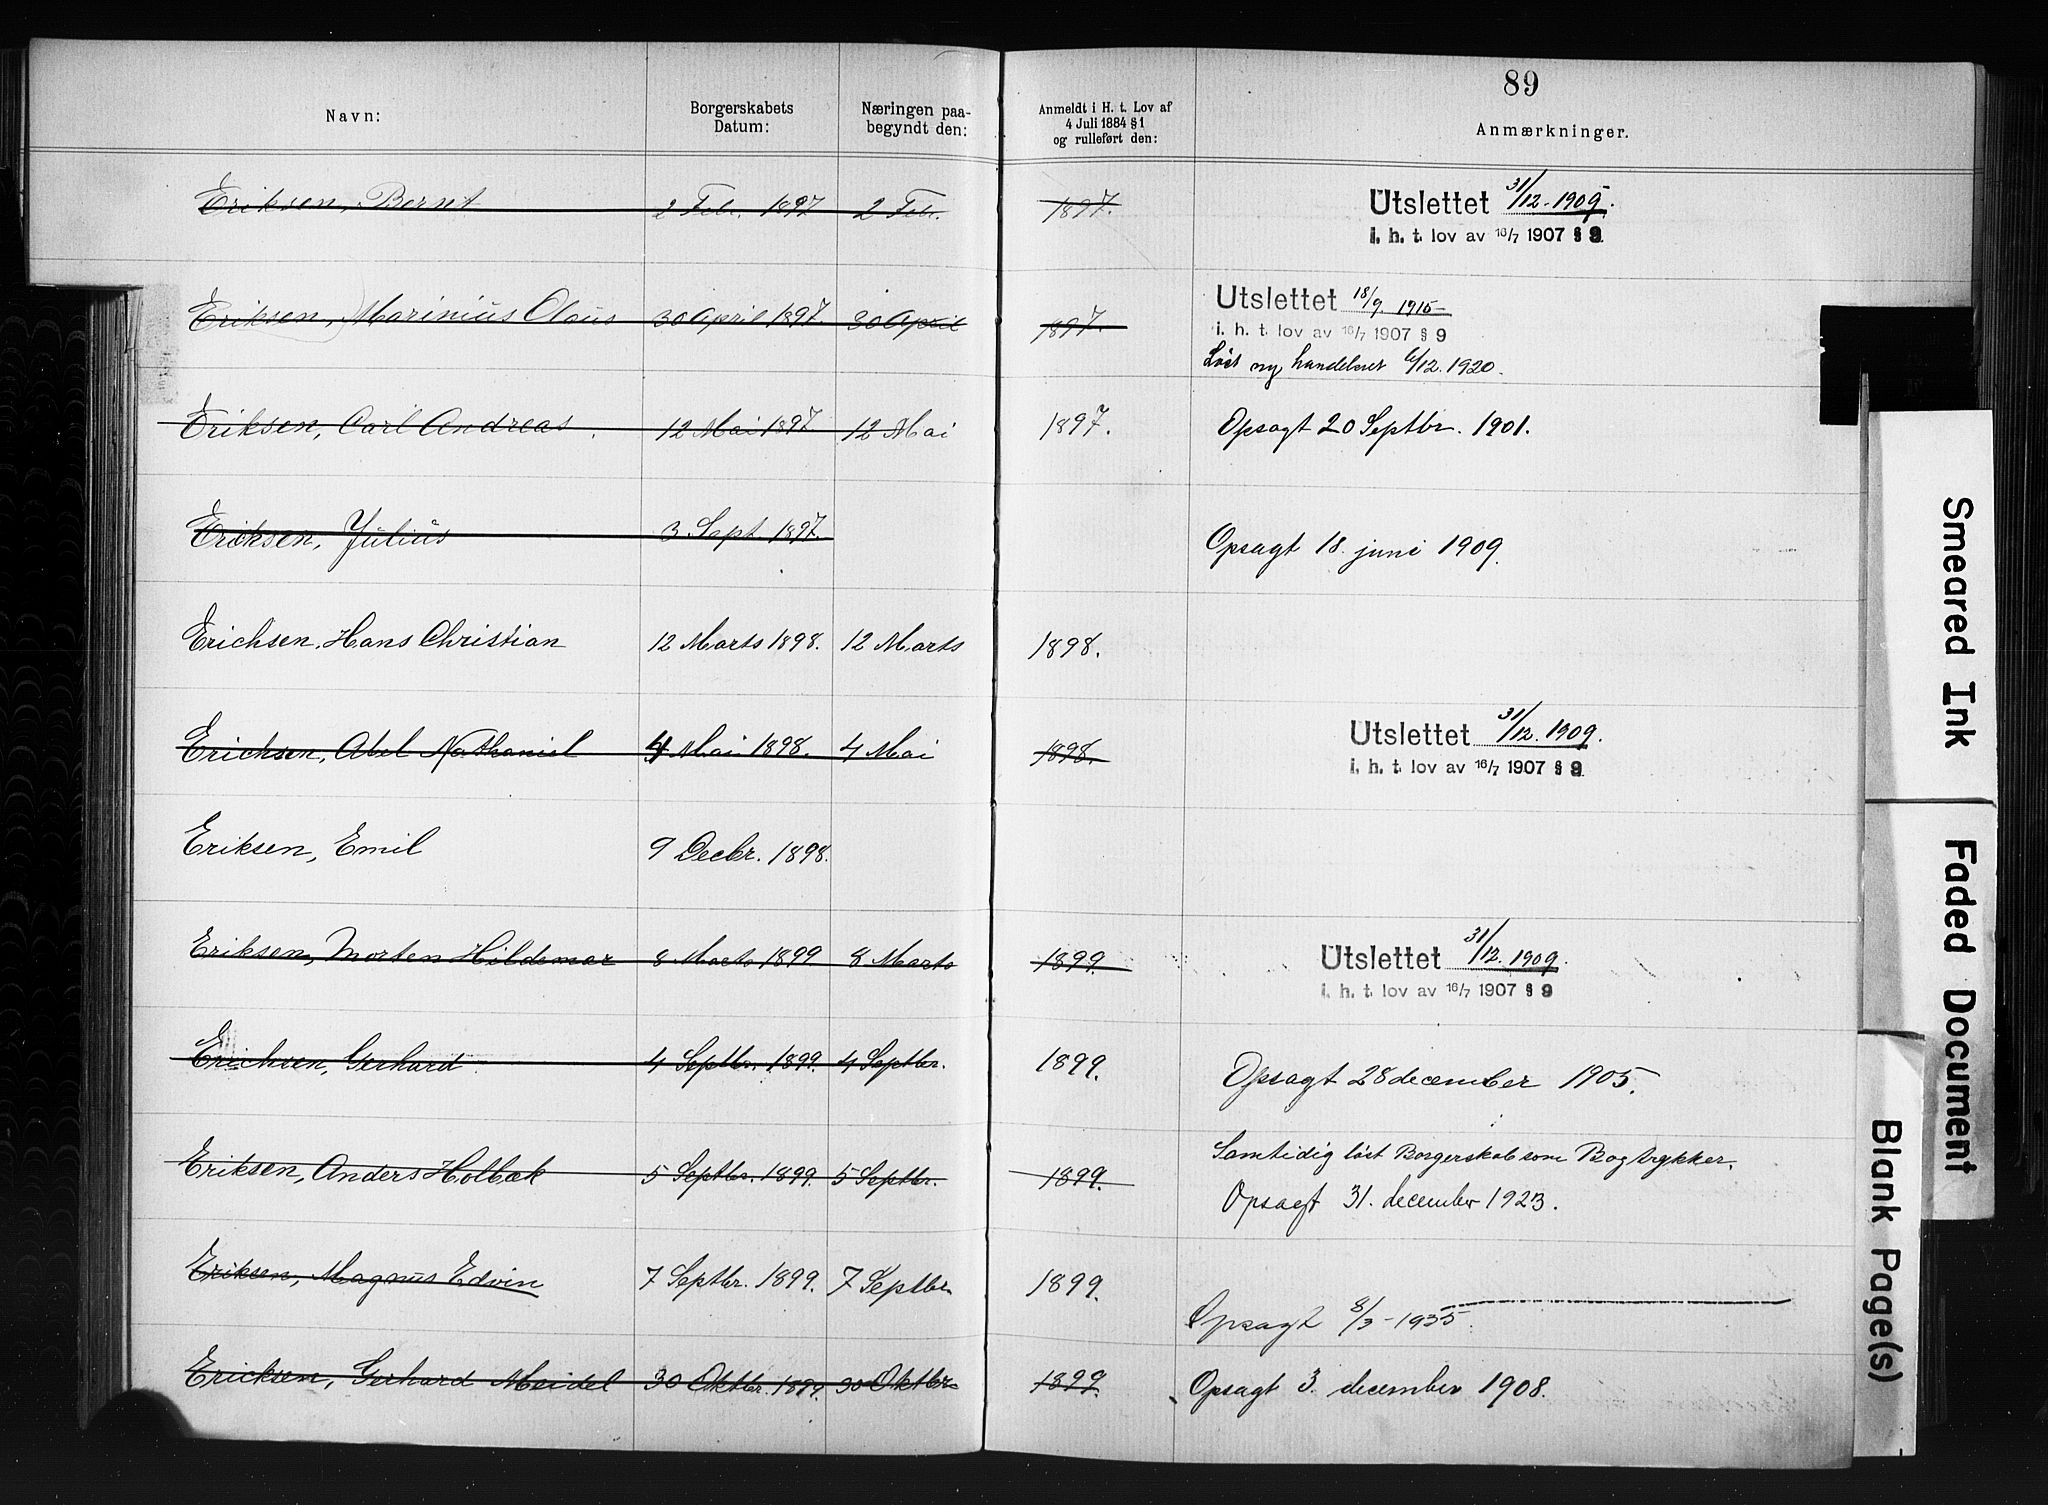 89
Navn: Borgerskabets Datum: Næringen paabegyndt den: Anmeldt i H. t. Lov af 4 Juli 1884 § 1 og rulleført den: Anmærkninger.
Eriksen, Bernt 2 Feb. 1897 2 Feb. 1897. Utslettet 31/12-1909.
i. h. t. lov av 16/7 1907 § 9
Eriksen, Marinius Olaus 30 April 1897. 30 April 1897. Utslettet 18/9. 1915
i. h. t. lov av 16/7 1907 § 9
Löst ny handelsret 6/12. 1920.
Eriksen, Carl Andreas. 12 Mai 1897 12 Mai 1897. Opsagt 20 Septbr. 1901.
Eriksen, Julius 3 Sept. 1897. Opsagt 18. juni 1909.
Erichsen, Hans Christian 12 Marts 1898. 12 Marts 1898.
Erichsen, Abel Nathaniel 4 Mai 1898. 4 Mai 1898. Utslettet 31/12. 1909.
i. h. t. lov av 16/7 1907 § 9
Eriksen, Emil 9 Decbr. 1898.
Eriksen, Morten Hildemar 8 Marts 1899 8 Marts 1899 Utslettet 31/12. 1909.
i. h. t. lov av 16/7 1907 § 9
Erichsen, Gerhard 4 Septbr. 1899. 4 Septbr. 1899. Opsagt 28 december 1905.
Eriksen, Anders Holbæk 5 Septbr. 1899. 5 Septbr. 1899. Samtidig löst Borgerskab som Bogtrykker.
Opsagt 31. december 1923.
Eriksen, Magnus Edvin 7 Septbr. 1899. 7 Septbr 1899.
Opsagt 8/3-1935.
Ericksen, Gerhard Meidel 30 Oktbr. 1899. 30 Oktbr 1899. Opsagt 3. december 1908.
Smeared Ink
Faded Document
Blank Page(s)